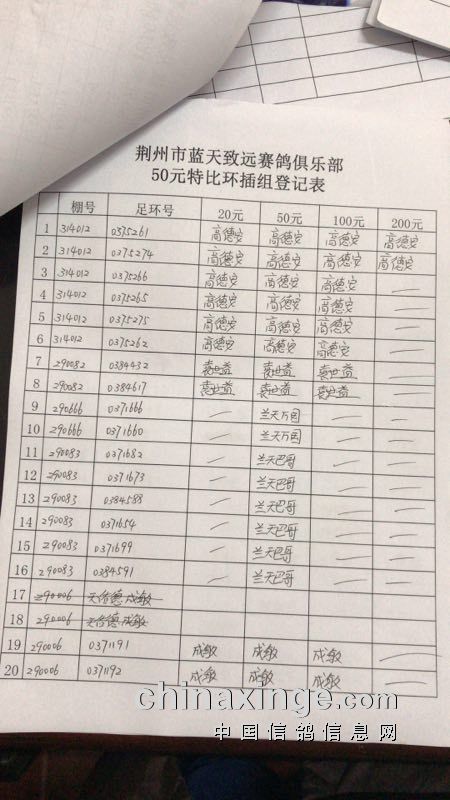 荆州市蓝天致远赛鸽俱乐部
50元特比环插组登记表
棚号 足环号 20元 50元 100元 200元
1 314012 0375261 高德安 高德安 高德安 高德安
2 314012 0375274 高德安 高德安 高德安 高德安
3 314012 0375266 高德安 高德安 高德安 —
4 314012 0375265 高德安 高德安 高德安 —
5 314012 0375275 高德安 高德安 高德安 —
6 314012 0375262 高德安 高德安 高德安 —
7 290082 0384432 袁世益 袁世益 袁世益 —
8 290082 0384617 袁世益 袁世益 袁世益 —
9 290666 0371666 — 兰天万国 — —
10 290666 0371660 — 兰天万国 — —
11 290083 0371682 — 兰天巴哥 — —
12 290083 0371673 — 兰天巴哥 — —
13 290083 0384588 — 兰天巴哥 — —
14 290083 0371654 — 兰天巴哥 — —
15 290083 0371699 — 兰天巴哥 — —
16 290083 0384591 — 兰天巴哥 — —
17 290006 成敏
18 290006 成敏
19 290006 0371191 成敏 成敏 成敏 —
20 290006 0371192 成敏 成敏 成敏 —
chinaxinge.com
中国信鸽信息网